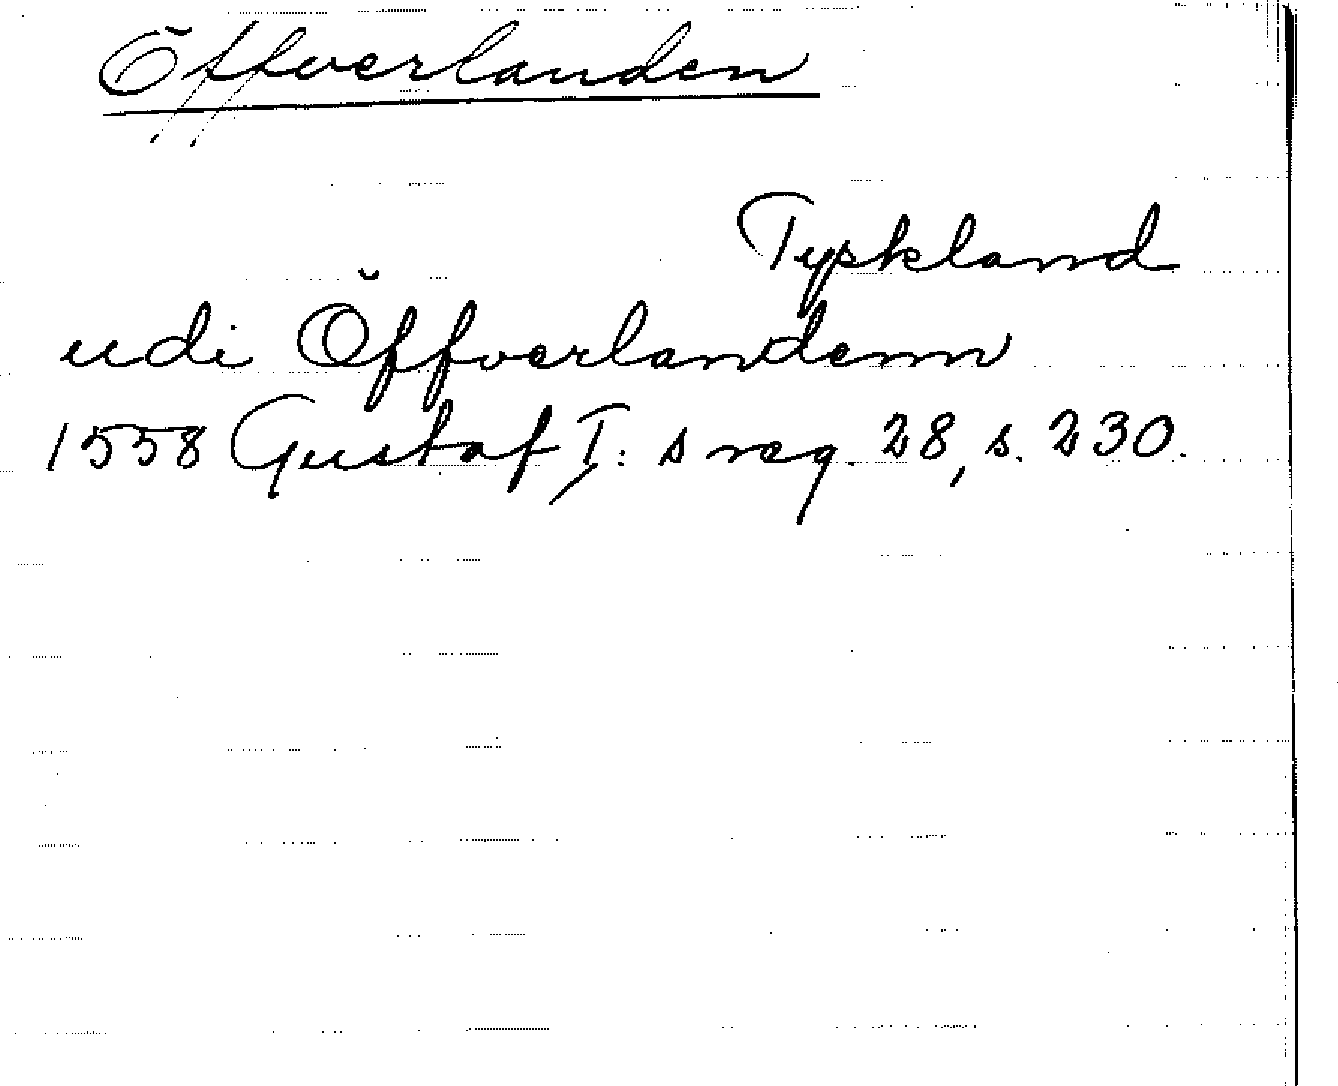 Öffverlanden
Tyskland
udi Öffverlandenn
1558 Gustaf I: s reg. 28, s. 230.